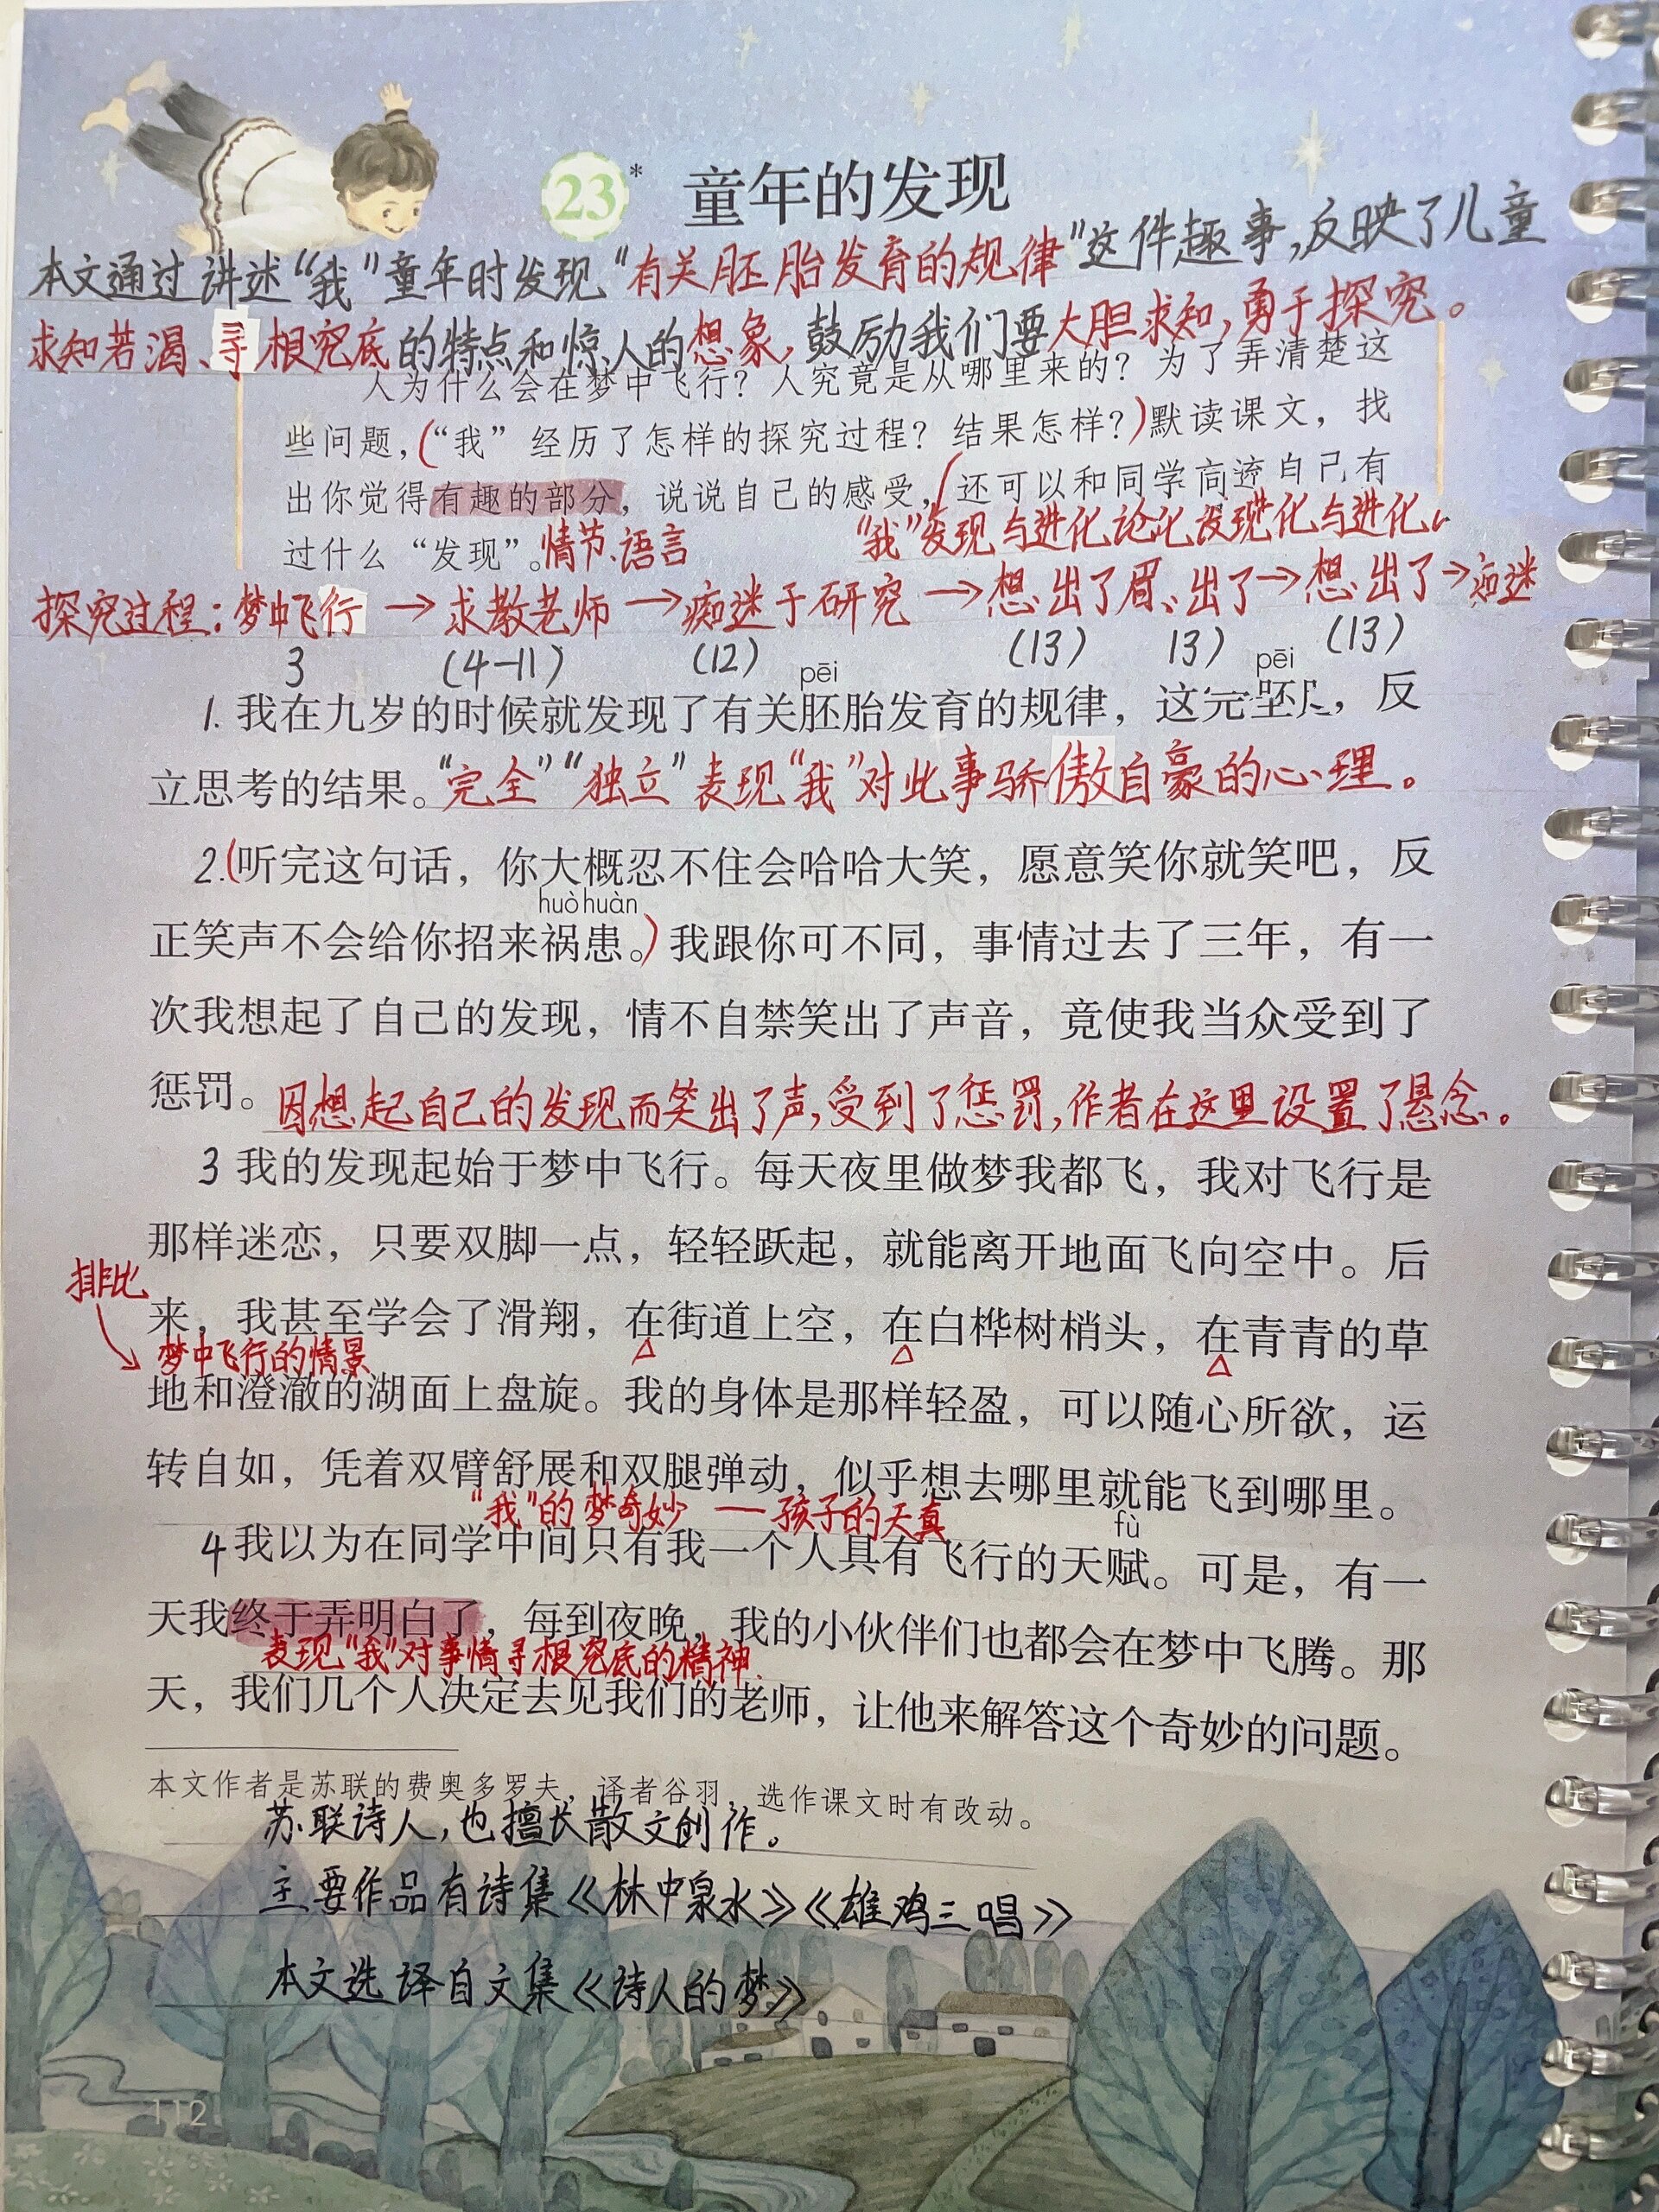 23* 童年的发现
本文通过讲述“我”童年时发现“有关胚胎发育的规律”这件趣事,反映了儿童
求知若渴、寻根究底的特点和惊人的想象,鼓励我们要大胆求知,勇于探究。
人为什么会在梦中飞行？人究竟是从哪里来的？为了弄清楚这
些问题，(“我”经历了怎样的探究过程？结果怎样？)默读课文，找
出你觉得有趣的部分，说说自己的感受，还可以和同学 自己有
过什么“发现”。情节、语言
“我”发现与进化论化 发现 化与进化
探究过程：梦中飞行→求教老师→痴迷于研究→想出了眉、出了→想出了→痴迷
3 (4-11) (12) (13) 13) (13)
pēi pēi
1. 我在九岁的时候就发现了有关胚胎发育的规律，这完 ，反
立思考的结果。“完全”“独立”表现“我”对此事骄傲自豪的心理。
2.(听完这句话，你大概忍不住会哈哈大笑，愿意笑你就笑吧，反
huò huàn
正笑声不会给你招来祸患。)我跟你可不同，事情过去了三年，有一
次我想起了自己的发现，情不自禁笑出了声音，竟使我当众受到了
惩罚。因想起自己的发现而笑出了声,受到了惩罚,作者在这里设置了悬念。
3 我的发现起始于梦中飞行。每天夜里做梦我都飞，我对飞行是
那样迷恋，只要双脚一点，轻轻跃起，就能离开地面飞向空中。后
排比
来，我甚至学会了滑翔，在街道上空，在白桦树梢头，在青青的草
梦中飞行的情景
地和澄澈的湖面上盘旋。我的身体是那样轻盈，可以随心所欲，运
转自如，凭着双臂舒展和双腿弹动，似乎想去哪里就能飞到哪里。
“我”的梦奇妙 — 孩子的天真
fù
4 我以为在同学中间只有我一个人具有飞行的天赋。可是，有一
天我终于弄明白了，每到夜晚，我的小伙伴们也都会在梦中飞腾。那
表现“我”对事情寻根究底的精神.
天，我们几个人决定去见我们的老师，让他来解答这个奇妙的问题。
本文作者是苏联的费奥多罗夫，译者谷羽，选作课文时有改动。
苏联诗人,也擅长散文创作。
主要作品有诗集《林中泉水》《雄鸡三唱》
本文选译自文集《诗人的梦》
112